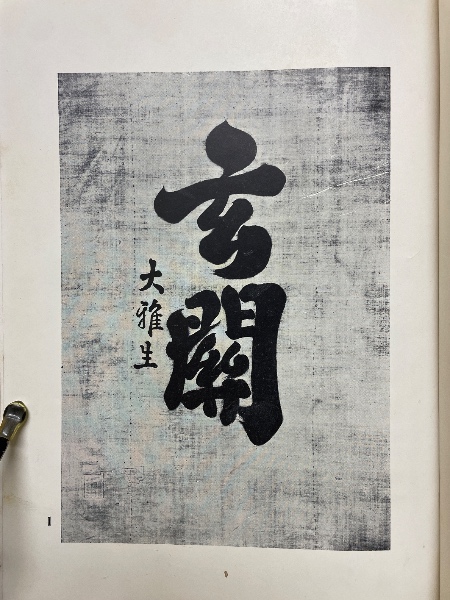 玄關
大雅生